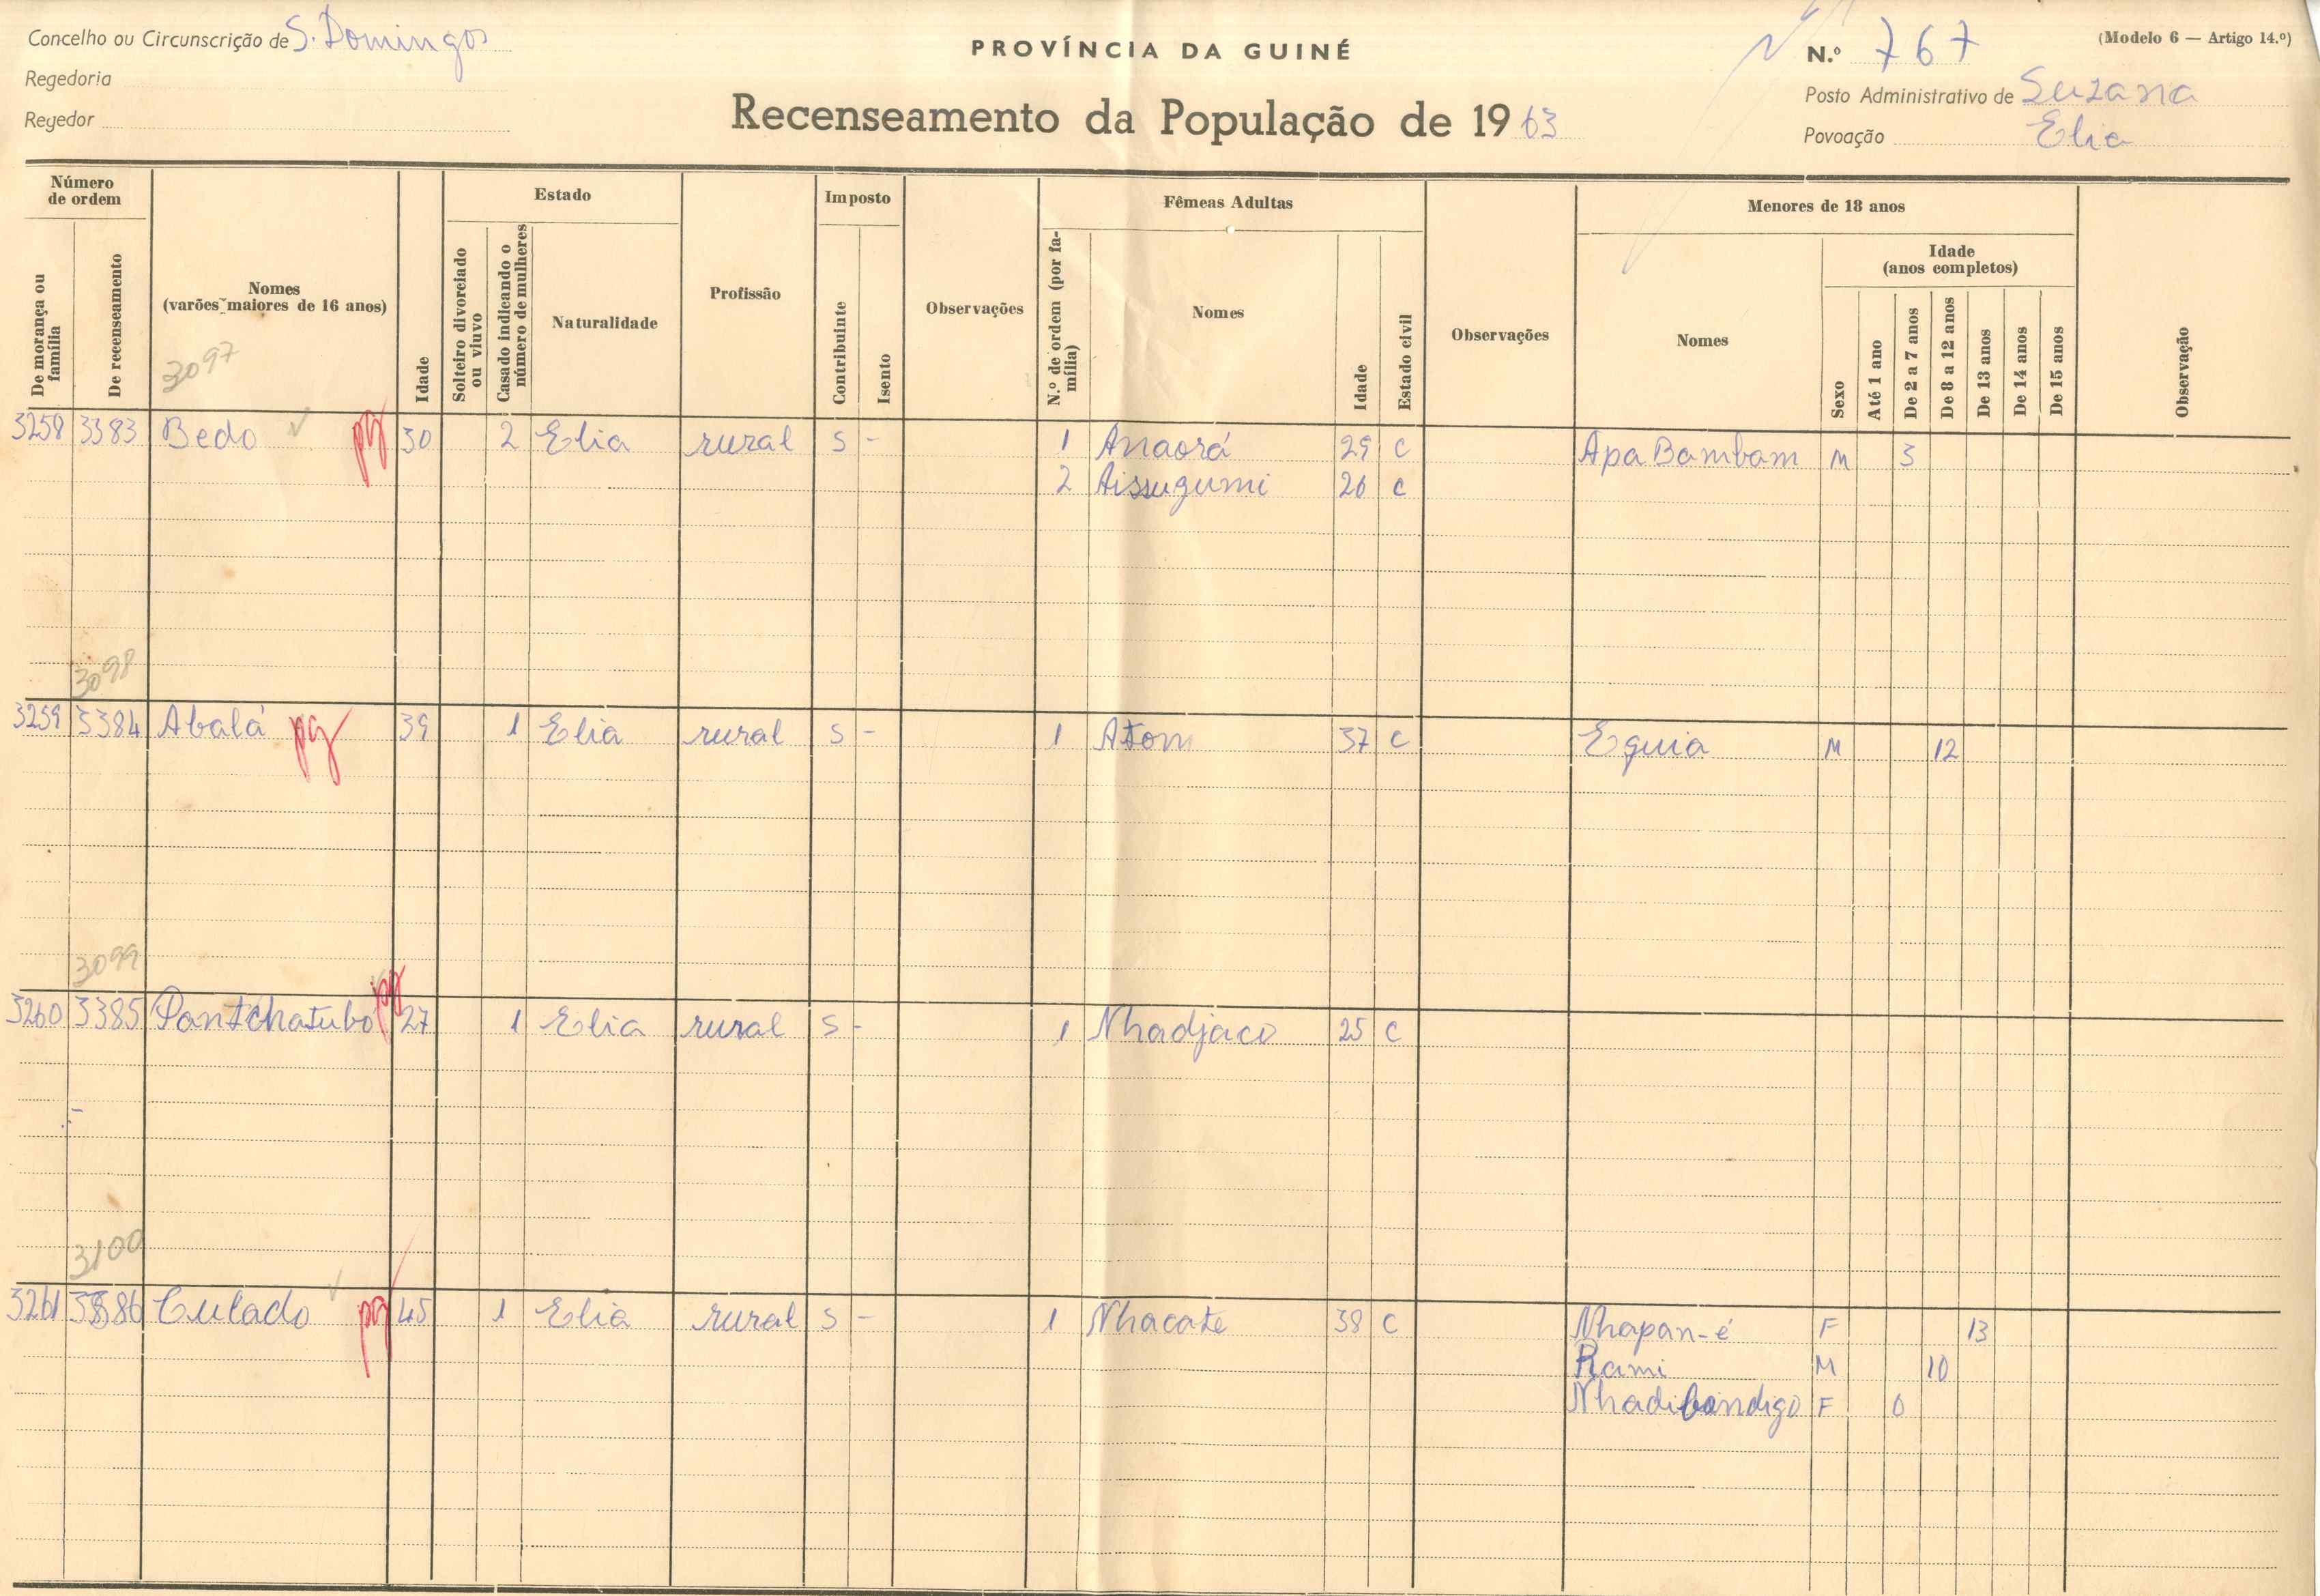 Concelho ou Circunscrição de S. Domingos
Regedoria
Regedor
PROVÍNCIA DA GUINÉ
Recenseamento da População de 1963
N.º 767
(Modelo 6 — Artigo 14.º)
Posto Administrativo de Suzana
Povoação Elia
Número de ordem
De morança ou família
De recenseamento
Nomes
(varões maiores de 16 anos)
3097
Idade
Estado
Solteiro divorciado ou viuvo
Casado indicando o número de mulheres
Naturalidade
Profissão
Imposto
Contribuinte
Isento
Observações
Fêmeas Adultas
N.º de ordem (por família)
Nomes
Idade
Estado civil
Observações
Menores de 18 anos
Nomes
Sexo
Idade
(anos completos)
Até 1 ano
De 2 a 7 anos
De 8 a 12 anos
De 13 anos
De 14 anos
De 15 anos
Observação
3258 3383 Bedo pg 30 2 Elia rural S - 1 Anaorá 29 C Apa Bambam M 3
2 Aissugumi 26 C
3098
3259 3384 Abalá pg 39 1 Elia rural S - 1 Atom 37 C Equia M 12
3099
3260 3385 Pantchatubó pg 27 1 Elia rural S - 1 Nhadjaco 25 C
3100
3261 3386 Culado pg 45 1 Elia rural S - 1 Nhacate 38 C Nhapan-é F 13
Rami M 10
F